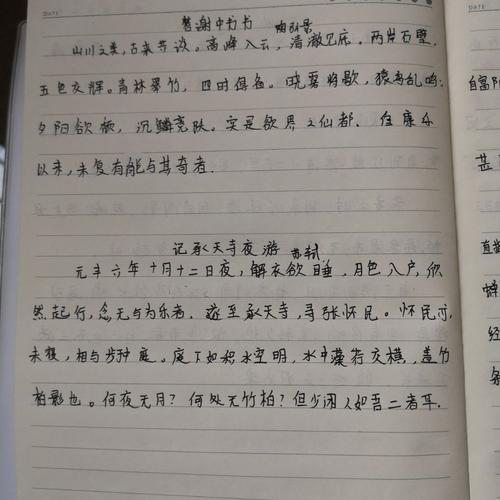 DATE
DATE
答谢中书书 陶弘景
山川之美,古来共谈。高峰入云,清澈见底。两岸石壁,
五色交辉。青林翠竹,四时俱备。晓雾将歇,猿鸟乱鸣;
夕阳欲颓,沉鳞竞跃。实是欲界之仙都.自康乐
以来,未复有能与其奇者.
记承天寺夜游 苏轼
元丰六年十月十二日夜,解衣欲睡,月色入户,欣
然起行,念无与为乐者.遂至承天寺,寻张怀民。怀民亦
未寝,相与步种庭。庭下如积水空明,水中藻荇交横,盖竹
柏影也。何夜无月?何处无竹柏?但少闲人如吾二者耳.
自富阳
甚
直
蝉
经